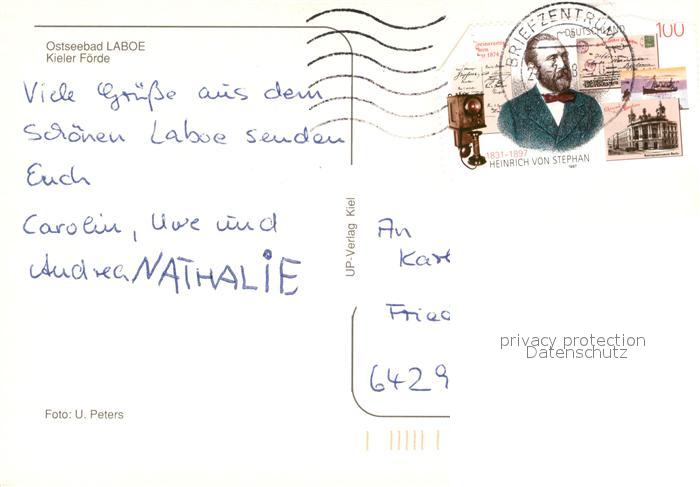 Ostseebad LABOE
Kieler Förde
Viele Grüße aus dem
schönen Laboe senden
Euch
Carolin, Uwe und
Andrea NATHALIE
Foto: U. Peters
UP-Verlag Kiel
BRIEFZENTRUM
DEUTSCHLAND
100
1831-1897
HEINRICH VON STEPHAN
1997
An
Fried
6429
privacy protection
Datenschutz